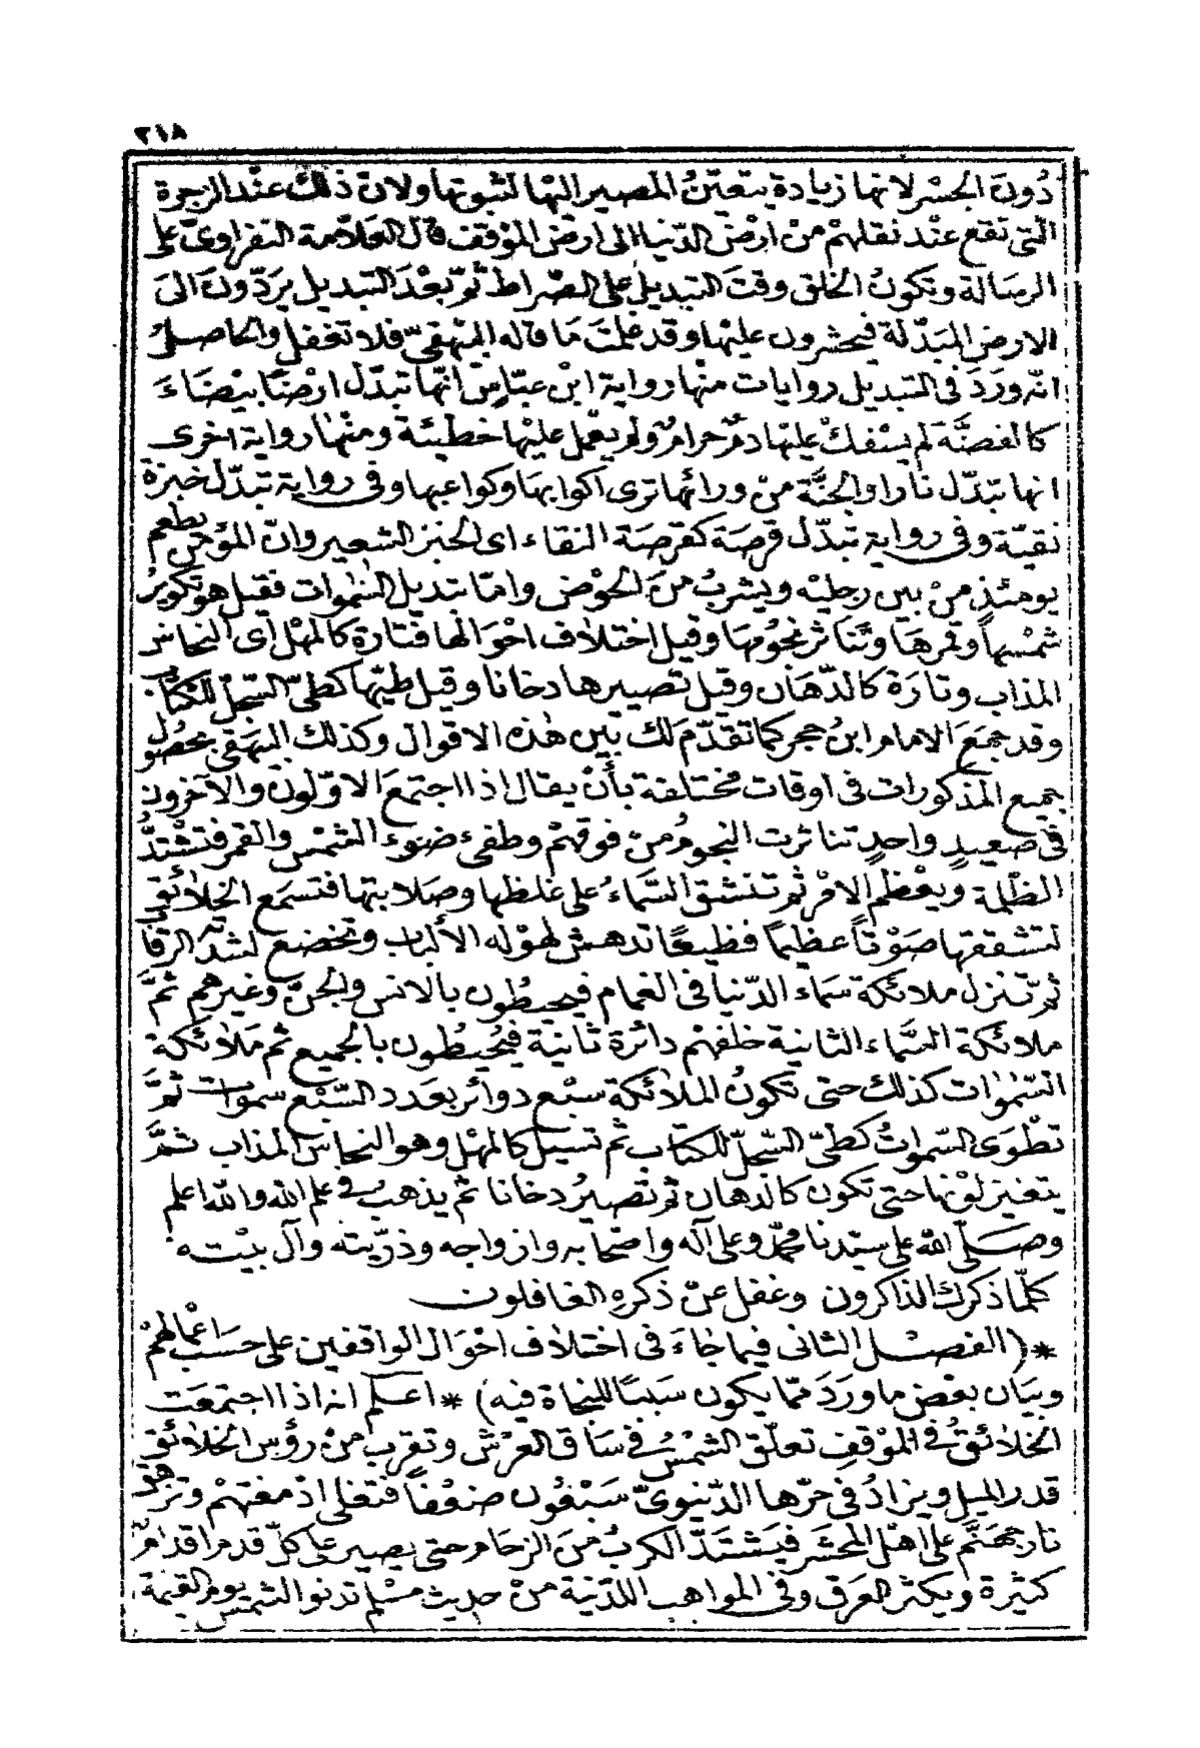 ٢١٨
دُونَ الجسْر لانها زيادة يتعيّنُ المصير اليْها لثبوتها ولان ذلك عنْد الزجرة
الّتى تقع عنْد نقلهمْ منْ ارْض الدّنيا الى ارْض الموْقف قال العلاّمة النفراوىّ على
الرسالة وتكونُ الخلق وقتَ التبديل على الصّراط ثمّ بعْدَ التبديل يردّونَ الىَ
الارض المبَدّلة فيحشرون عليْها وقد علمْتَ مَا قاله البيْهقىّ فلا تغفل والحاصلُ
انّه ورَدَ فى التبديل روايات منْها رواية ابْن عبّاسٍ انّها تبدّل ارْضًا بيْضَاءَ
كالفضّة لم يسْفكْ عليْها دمٌ حرامٌ ولم يعْمل عليْها خطيئة ومنْها رواية اخرى
انها تبدّل نارا والجنّة منْ ورائها ترى اكوابها وكواعبها وفى رواية تبدّل خبزة
نقيّة وفى رواية تبدّل قرصَة كقرصَة النقاء اى الخبز الشعير وانّ المؤمن يطعم
يومئذٍ منْ بين رجليْه ويشربُ منَ الحوْض وامّا تبديل السّموات فقيل هو تكويرُ
شمْسها وقمرهَا وتناثر نجُومهَا وقيل اختلاف احْوالها فتارة كالمهْل اى النحاس
المذاب وتارَة كالدّهَان وقيل تصييرها دخانا وقيل طيّها كطىّ السّجلّ للكتاب
وقد جمَعَ الامام ابنُ حجر كما تقدّم لك بيْن هٰذه الاقوال وكذلك البيهقى بحصُول
جميع المذكورات فى اوقات مختلفة بأنْ يقال اذا اجتمعَ الاوّلونَ والآخرون
فى صَعيدٍ واحدٍ تناثرت النجومُ منْ فوقهمْ وطفئ ضوْءُ الشمْس والقمر فتشْتدُّ
الظّلمة ويعْظم الامْر ثم تنشقّ السّماءُ على غلظها وصَلابتها فتسمَع الخلائق
لتشققها صَوْتاً عظيماً فظيعًا تدهش لهوْله الألباب وتخضع لشدّته الرقاب
ثمّ تنزل ملائكة سَماء الدّنيا فى الغمام فيحيطُون بالانس والجنّ وغيرهم ثمَّ
ملائكة السَّماء الثانية خلفهمْ دائرة ثانية فيُحيطُون بالجميع ثم مَلائكة
السّمٰوات كذلك حتى تكونُ الملائكة سبْع دوائر بعَدد السّبْع سموات ثمَّ
تطْوَى السّمواتُ كطىّ السّجلّ للكتاب ثم تسيل كالمهْل وهو النحاس المذاب ثمَّ
يتغيّر لوْنها حتى تكون كالدهان ثم تصيرُ دخانا ثم يذهب فى علم الله والله اعلم
وصَلّى الله على سيّدنا محمّد وعلى آله واصْحابه وازواجه وذرّيته وآل بيْته
كلّما ذكرك الذاكرون وغفل عنْ ذكره الغافلون
*(الفصْل الثانى فيما جَاءَ فى اختلاف احْوال الواقفين على حسَب اعْمالهمْ
وبيَان بعْض ما ورَدَ ممّا يكون سَببًا للنجاة فيه)* اعلم انه اذا اجتمعَت
الخلائقُ فى الموْقفِ تعلّق الشمْسُ فى سَاق العرْش وتقرب منْ رؤس الخلائق
قدر الميل ويزادُ فى حرّها الدّنيوىّ سَبْعُون ضعْفاً فتغلى ادْمغتهمْ وتزهق
نار جهنّم على اهْل المحْشَر فيَشتدّ الكربُ منَ الزحَام حتى يصير على كلّ قدم اقدامٌ
كثيرة ويكثر العرَق وفى المواهب اللدّنية منْ حديث مسْلم تدنو الشمْس يوم القيٰمة